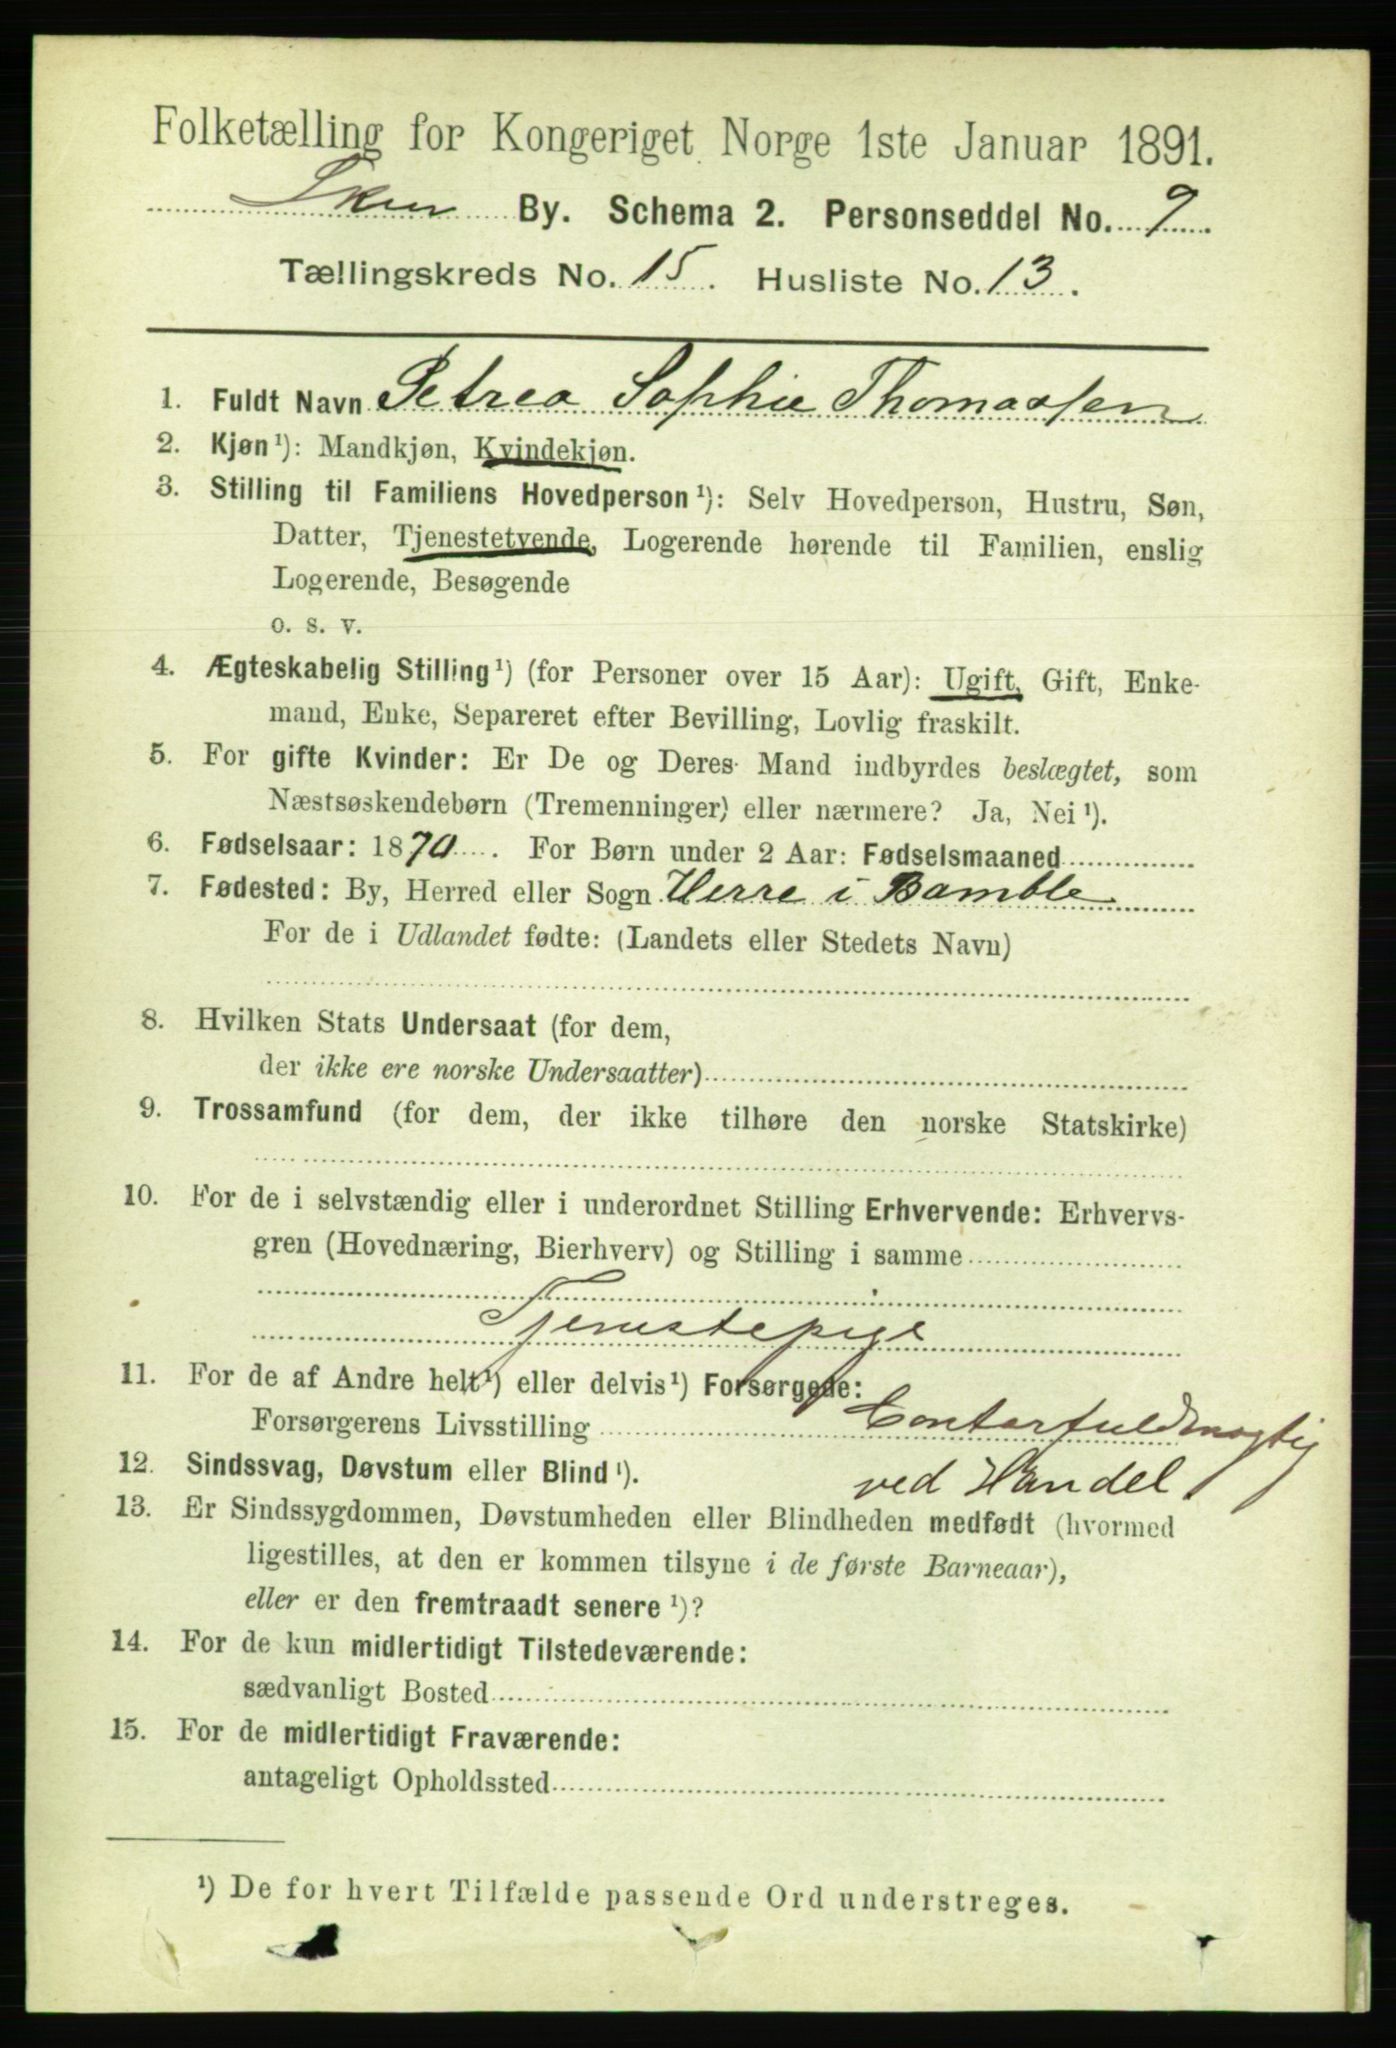 Folketælling for Kongeriget Norge 1ste Januar 1891.
Skien By. Schema 2. Personseddel No. 9.
Tællingskreds No. 15. Husliste No. 13.
1. Fuldt Navn Petrea Sophie Thomassen
2. Kjøn ¹): Mandkjøn, Kvindekjøn.
3. Stilling til Familiens Hovedperson ¹): Selv Hovedperson, Hustru, Søn,
Datter, Tjenestetyende, Logerende hørende til Familien, enslig
Logerende, Besøgende
o. s. v.
4. Ægteskabelig Stilling ¹) (for Personer over 15 Aar): Ugift, Gift, Enke-
mand, Enke, Separeret efter Bevilling, Lovlig fraskilt.
5. For gifte Kvinder: Er De og Deres Mand indbyrdes beslægtet, som
Næstsøskendebørn (Tremenninger) eller nærmere? Ja, Nei ¹).
6. Fødselsaar: 1870. For Børn under 2 Aar: Fødselsmaaned
7. Fødested: By, Herred eller Sogn Herre i Bamble
For de i Udlandet fødte: (Landets eller Stedets Navn)
8. Hvilken Stats Undersaat (for dem,
der ikke ere norske Undersaatter)
9. Trossamfund (for dem, der ikke tilhøre den norske Statskirke)
10. For de i selvstændig eller i underordnet Stilling Erhvervende: Erhvervs-
gren (Hovednæring, Bierhverv) og Stilling i samme
Tjenestepige
11. For de af Andre helt ¹) eller delvis ¹) Forsørgede:
Forsørgerens Livsstilling Contorfuldmægtig
12. Sindssvag, Døvstum eller Blind ¹). ved Handel.
13. Er Sindssygdommen, Døvstumheden eller Blindheden medfødt (hvormed
ligestilles, at den er kommen tilsyne i de første Barneaar),
eller er den fremtraadt senere ¹)?
14. For de kun midlertidigt Tilstedeværende:
sædvanligt Bosted
15. For de midlertidigt Fraværende:
antageligt Opholdssted
¹) De for hvert Tilfælde passende Ord understreges.